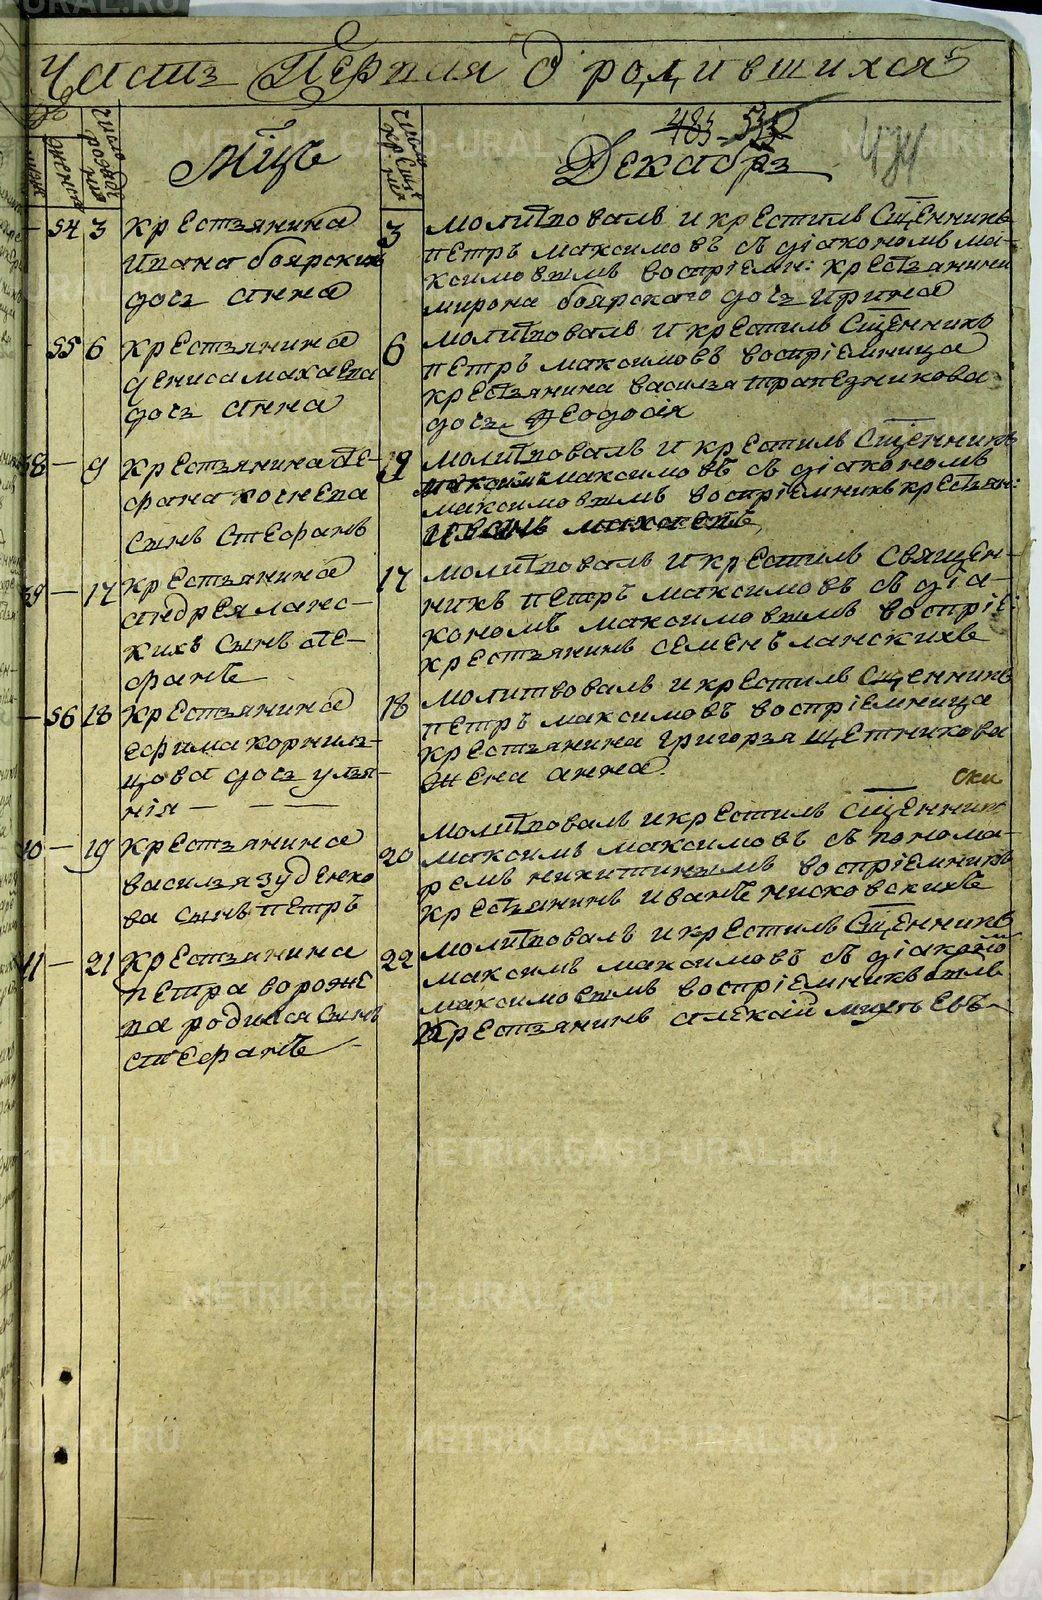 Часть Первая О родившихся
483
Мцъ
Декабрь
54 3 крестьянина
Ивана боярских
дочь анна
3 молитвовалъ и крестилъ Сщенникъ
петръ максимовъ съ діакономъ ма-
ксимовымъ воспріемн: крестьянина
мирона боярскаго дочь ирина
55 6 крестьянина
дениса махаева
дочь анна
6 молитвовалъ и крестилъ Сщенникъ
петръ максимовъ воспріемница
крестьянина василья трапезникова
дочь Ѳеодосія
38 9 крестьянина сте-
фана
сынъ стефанъ
9 молитвовалъ и крестилъ Сщенникъ
максимъ максимовъ съ діакономъ
максимовымъ воспріемникъ крестьян:
иванъ
39 17 крестьянина
андрея ланс-
кихъ сынъ сте-
фанъ
17 молитвовалъ и крестилъ священ-
никъ петръ максимовъ съ діа-
кономъ максимовымъ воспріе:
крестьянинъ семенъ ланскихъ
56 18 крестьянина
ефима корниль-
цова дочь улья-
нія
18 молитвовалъ и крестилъ Сщенникъ
петръ максимовъ воспріемница
крестьянина григорья щетникова
жена анна
40 19 крестьянина
василья зуденко
ва сынъ петръ
20 молитвовалъ и крестилъ Сщенникъ
максимъ максимовъ съ понома-
ремъ никитинымъ воспріемникъ
крестьянинъ иванъ нисковскихъ
41 21 крестьянина
петра вороже
ва родился сынъ
стефанъ
22 молитвовалъ и крестилъ Сщенникъ
максимъ максимовъ съ діакономъ
максимовымъ воспріемникъ былъ
крестьянинъ алексей
METRIKI.GASO-URAL.RU
METRIKI.GASO-URAL.RU
METRIKI.GASO-URAL.RU